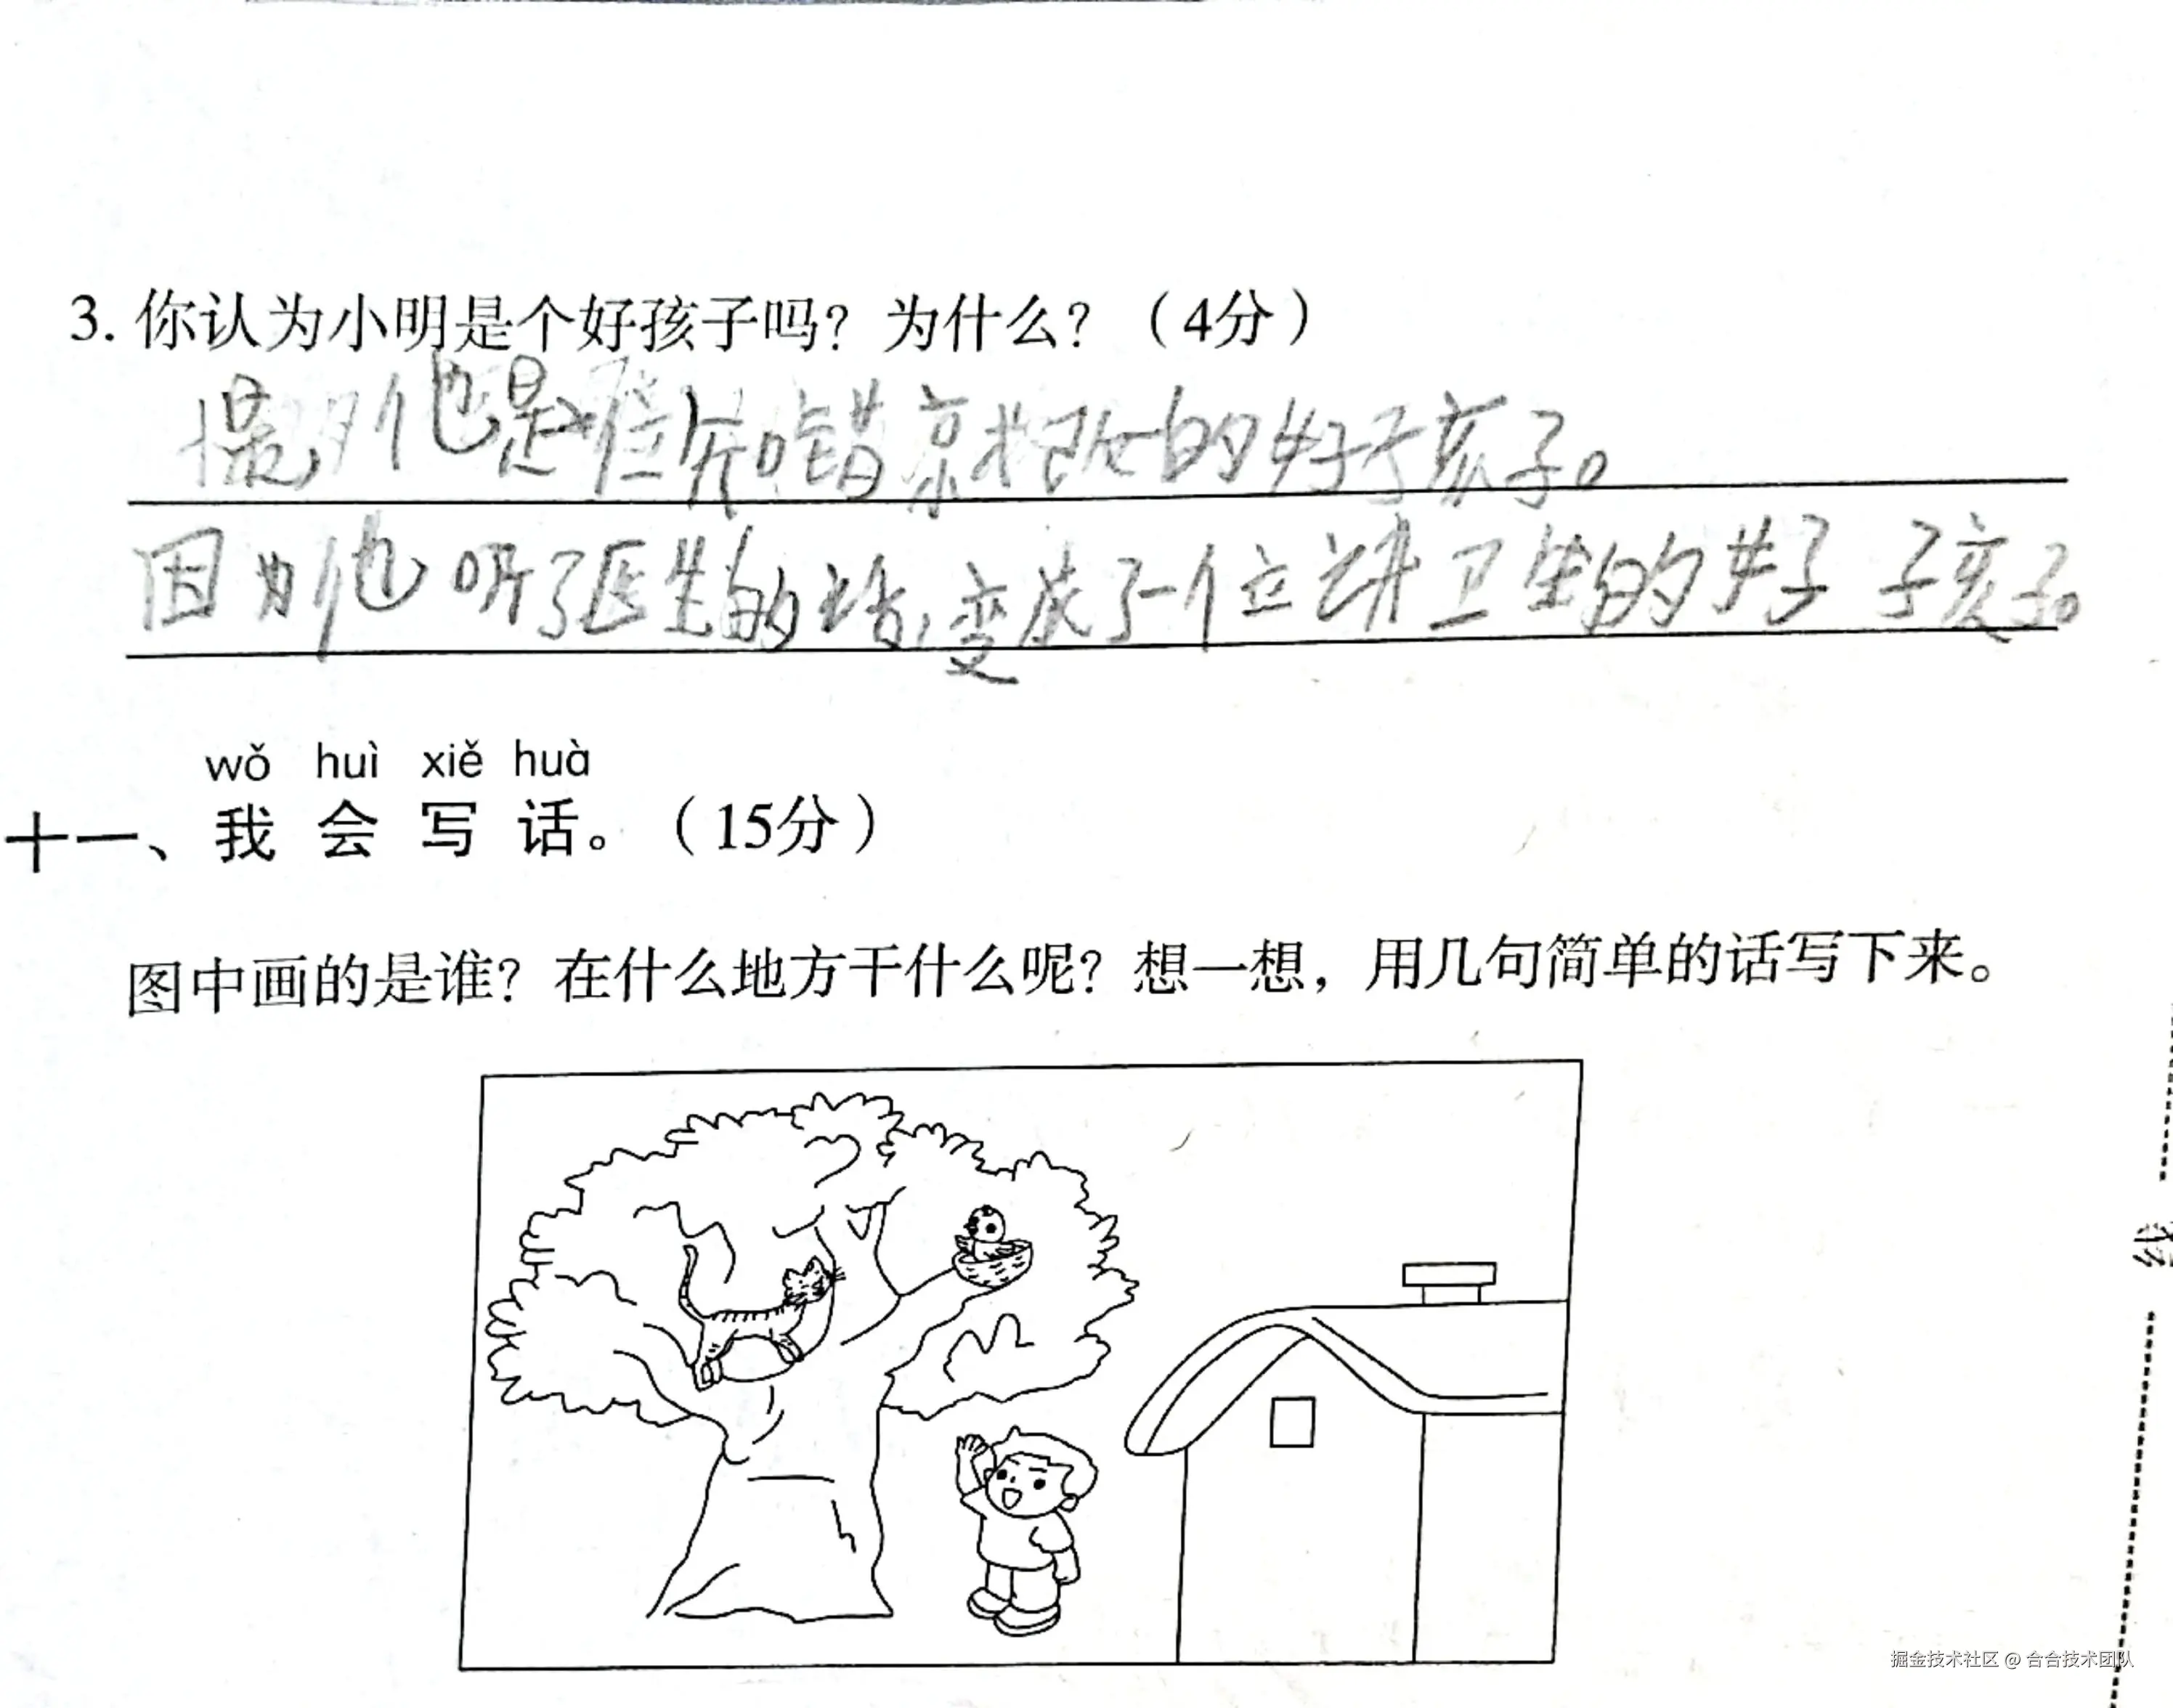 3. 你认为小明是个好孩子吗？为什么？（4分）
他是一位知错就改的好孩子。
因为他听了医生的话,变成了一位讲卫生的好孩子。
wǒ huì xiě huà
十一、我会写话。（15分）
图中画的是谁？在什么地方干什么呢？想一想，用几句简单的话写下来。
掘金技术社区 @ 合合技术团队